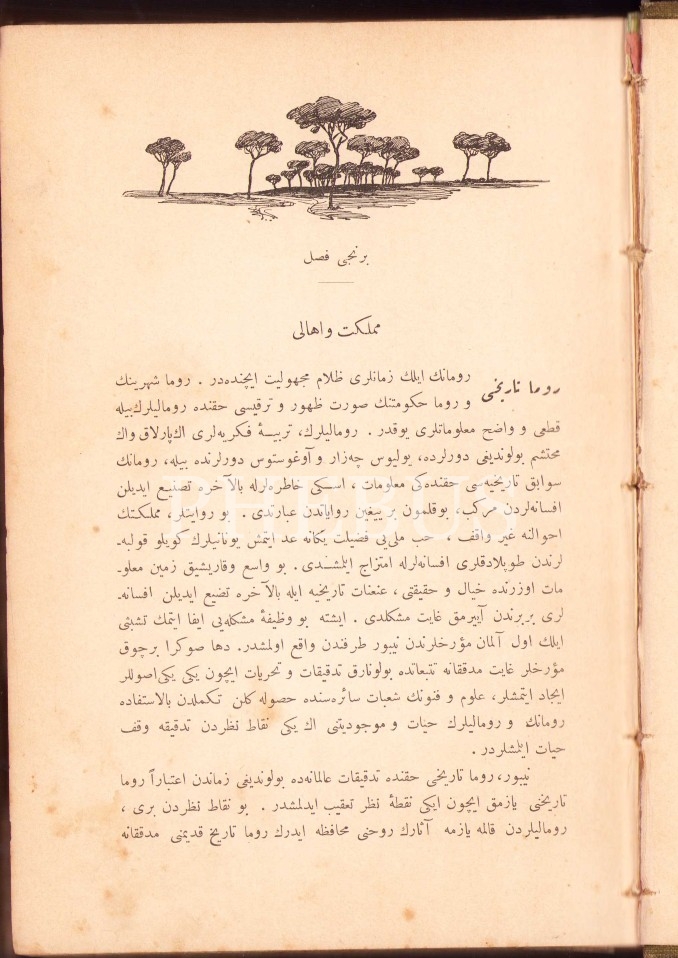 برنجی فصل
مملكت و اهالی
روما تاریخی
رومانك ایلك زمانلری ظلام مجهولیت ایچنده‌در . روما شهرینك
و روما حكومتنك صورت ظهور و ترقیسی حقنده رومالیلرك‌بیله
قطعی و واضح معلوماتلری یوقدر . رومالیلرك، تربیۀ فكریه‌لری اك‌پارلاق واك
محتشم بولوندیغی دورلرده، یولیوس چه‌زار و آوغوستوس دورلرنده بیله، رومانك
سوابق تاریخیه‌سی حقنده‌كی معلومات ، اسكی خاطره‌لرله بالآخره تصنیع ایدیلن
افسانه‌لردن مركب، بوقلمون بر ییغین روایاتدن عبارتدی . بو روایتلر، مملكتك
احوالنه غیر واقف ، حب ملی‌یی فضیلت یكانه عد ایتمش یونانیلرك كویلو قولبه‌ـ
لرندن طوپلادقلری افسانه‌لرله امتزاج ایلمشدی . بو واسع وقاریشیق زمین معلوـ
مات اوزرنده خیال و حقیقتی ، عنعنات تاریخیه ایله بالآخره تصنیع ایدیلن افسانه‌ـ
لری بربرندن آییرمق غایت مشكلدی . ایشته بو وظیفۀ مشكله‌یی ایفا ایتمك تشبثی
ایلك اول آلمان مؤرخلرندن نیبور طرفندن واقع اولمشدر. دها صوكرا برچوق
مؤرخلر غایت مدققانه تتبعاتده بولونارق تدقیقات و تحریات ایچون یكی یكی‌اصوللر
ایجاد ایتمشلر، علوم و فنونك شعبات سائره‌سنده حصوله كلن تكملدن بالاستفاده
رومانك و رومالیلرك حیات و موجودیتنی اك یكی نقاط نظردن تدقیقه وقف
حیات ایلمشلردر .
نیبور، روما تاریخی حقنده تدقیقات عالمانه‌ده بولوندیغی زماندن اعتباراً روما
تاریخنی یازمق ایچون ایكی نقطۀ نظر تعقیب ایدلمشدر . بو نقاط نظردن بری ،
رومالیلردن قالمه یازمه آثارك روحنی محافظه ایدرك روما تاریخ قدیمنی مدققانه
PHEBUS